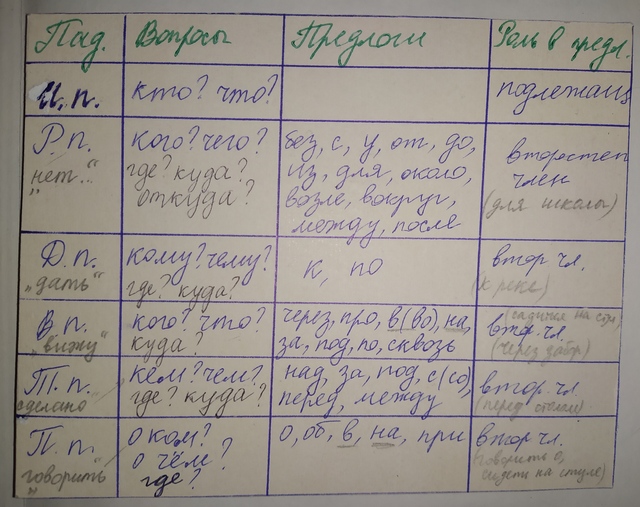 Пад. Вопросы Предлоги Роль в предл.
И.п. кто? что? подлежащ
Р.п. кого? чего? без, с, у, от, до, второстеп
„нет..." где? куда? из, для, около, член
откуда? возле, вокруг, (для школы)
между, после
Д.п. кому? чему? к, по втор чл.
„дать" где? куда? (к реке)
В.п. кого? что? через, про, в(во), на, втор. чл. (садимся на
„вижу" куда? за, под, по, сквозь (через забор)
Т.п. кем? чем? над, за, под, с(со), втор. чл.
сделано где? куда? перед, между (перед столом)
П.п. о ком? о, об, в, на, при втор чл.
„говорить" о чём? говорить о,
где? сидеть на стуле)